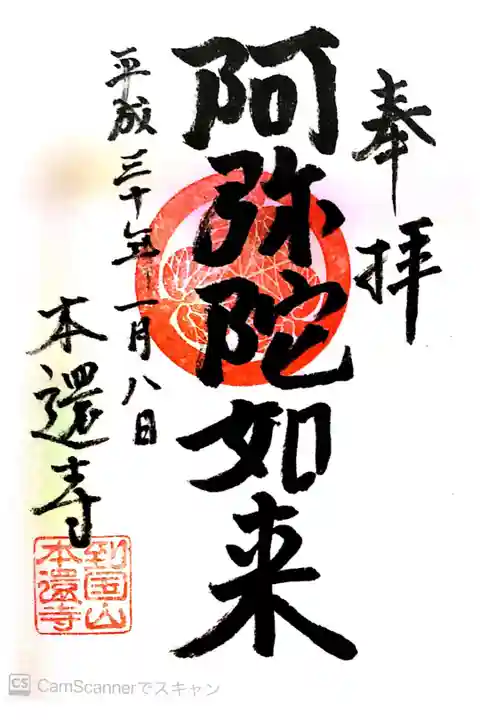 奉拝
阿弥陀如来
平成三十年一月八日
本還寺
到岸山
本還寺
CS CamScannerでスキャン